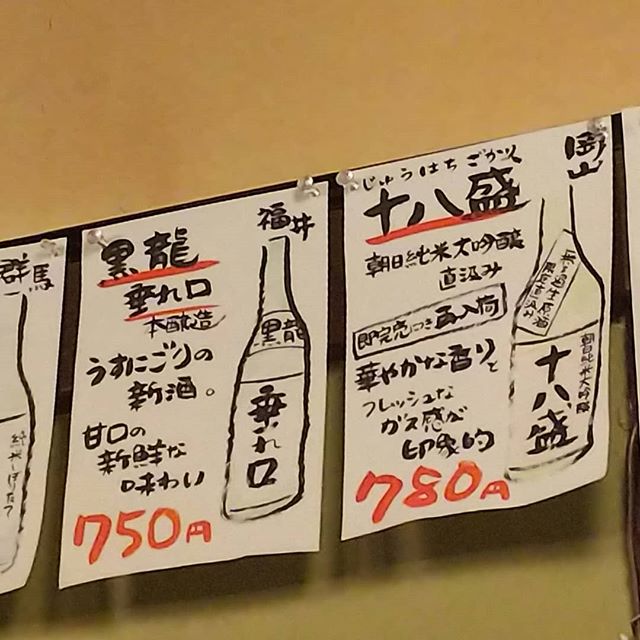 群馬
純米しぼたて
福井
黒龍
垂れ口
本醸造
うすにごりの
新酒。
甘口の
新鮮な
味わい
750円
黒龍
垂れ口
岡山
じゅうはちざかり
十八盛
朝日純米大吟醸
直汲み
即完売につき再入荷
華やかな香りと
フレッシュな
ガス感が
印象的
780円
無濾過生原酒
限定直汲み
朝日純米大吟醸
十八盛